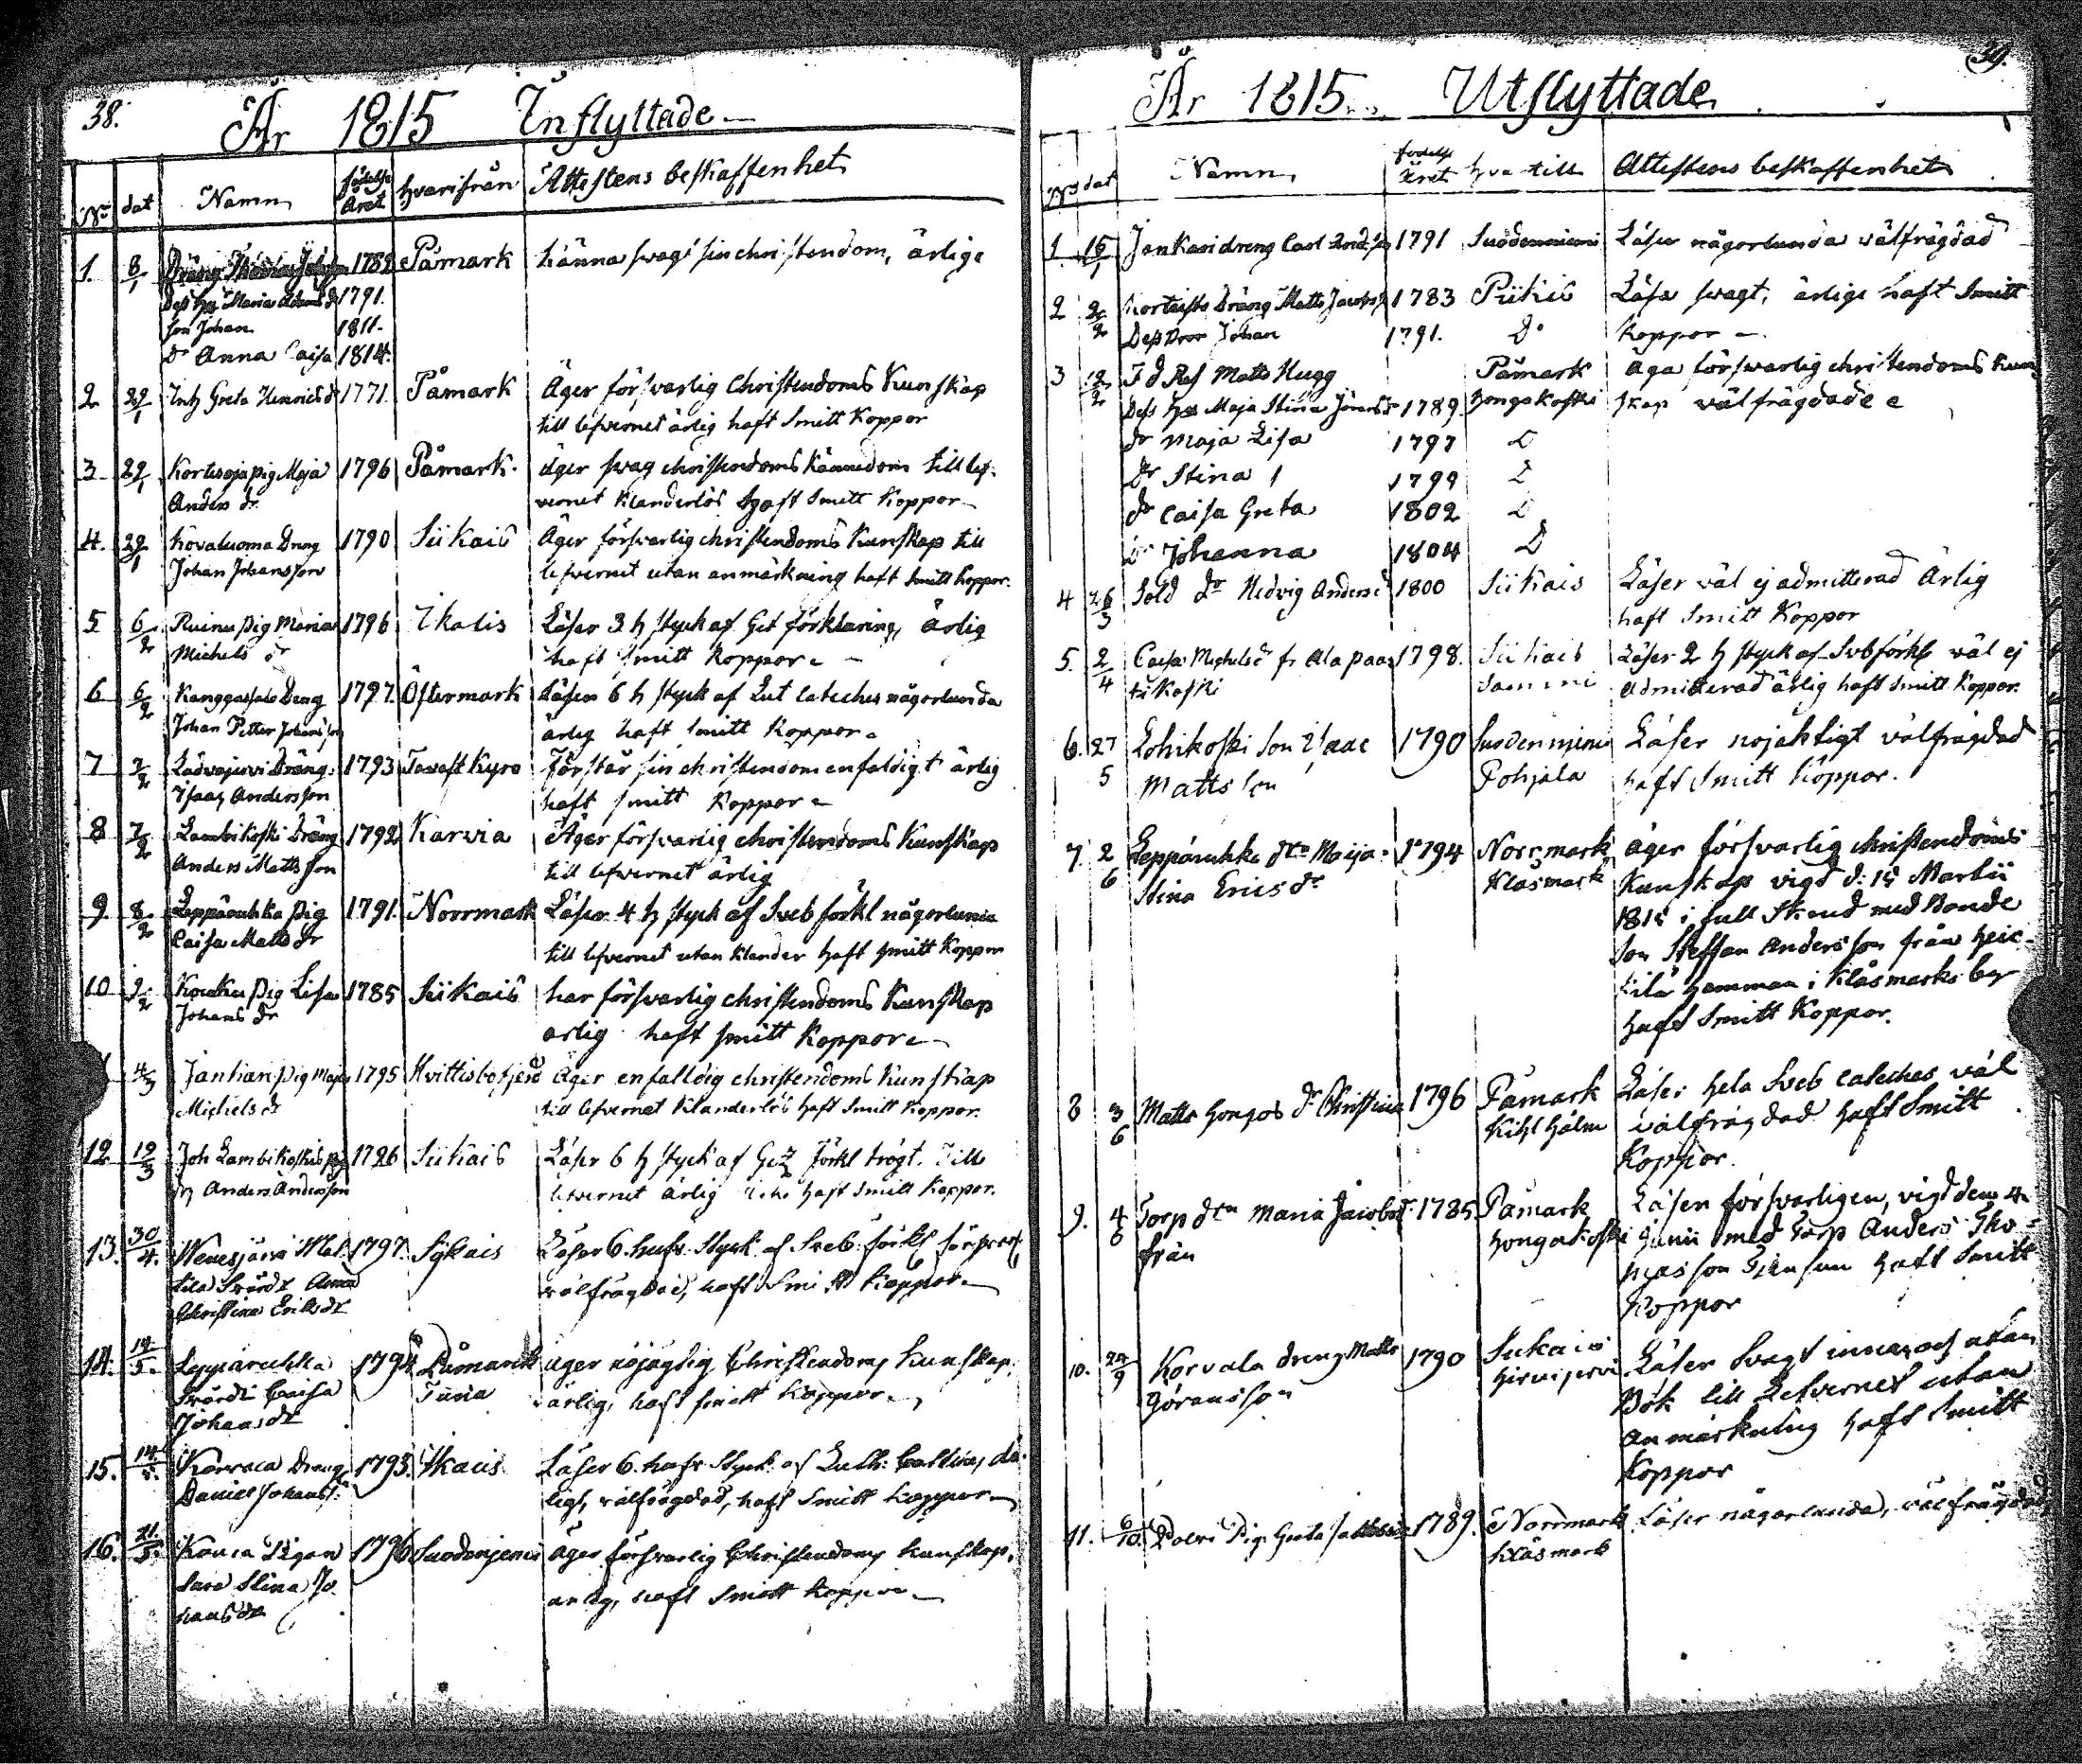 38.
År 1815 Inflyttade
No dat Namn födelse Året hvarifrån Attestens beskaffenhet
1. 8/1 Dräng Thomas 1789 Påmark känna svagt sin christendom, ärlige
Dess Hu Maria Adams dr 1791.
son Johan 1811.
Dr Anna Caisa 1814.
2 29/1 Inh Greta Henricsdr 1771. Påmark Äger försvarlig Christendoms Kunskap
till lefvernet ärlig haft Smitt Koppor
3 29/1 Kortesoja pig Maja 1796 Påmark. äger svag christendoms Kännedom till lef-
Anders dr vernet Klanderlös haft Smitt Koppor
4. 29/1 Kovaluoma Dreng 1790 Siikais Äger försvarlig christendoms Kunskap till
Johan Johansson lefvernet utan anmärkning haft Smitt Koppor.
5 6/2 pig Maria 1796 Ikalis Läser 3 h styck af förklaring, ärlig
Michels dr haft Smitt Koppor
6 6/2 Kanggassalo Dreng 1797. Östermark Läser 6 h styck af Lut cateches någorlunda
Johan Petter Johansson ärlig haft smitt Koppor
7 7/2 Ladvajervi Dräng 1793 Tavast Kyro Förstår sin christendom enfaldigt ärlig
Isaac Andersson haft smitt Koppor
8 7/2 Lambikoski Dräng 1792 Karvia Äger försvarlig christendoms Kunskap
Anders Mattsson till lefvernet ärlig
9. 8/2 Leppäruhka pig 1791. Norrmark Läser 4 h styck af Sveb förkl någorlunda
Caisa Matts dr till lefvernet utan klander haft smitt Koppor
10 9/2 pig Lisa 1785 Siikais har försvarlig christendoms Kunskap
Johans dr ärlig haft smitt Koppor
4/3 Jantian pig Maja 1795 Hvittisbofjerd Äger enfalldig christendoms Kunskap
Michels dr till lefvernet Klanderlös haft Smitt Koppor.
12 19/3 Joh Lambikoskis 1786 Siikais Läser 6 h styck af förkl trögt. Till
Anders Andersson lefvernet ärlig haft Smitt Koppor.
13. 30/4. Wenesjärvi Mat- 1797. Sykais Läser 6. hufv. Styck af Sveb: förkl försvarl
tila Svärdr Anna välfrägdad, haft Smitt Koppor
Christina Eriksdr
14. 14/5. Leppäruhka 1794 Påmark äger nöjagdig Christendoms Kunskap,
Svärdr Caisa Tuna ärlig, haft smitt Koppor
Johansdr
15. 14/5. Dreng 1793. Ikalis Läser 6. hufv Styck af Luth: då-
Daniel Johanss: ligt, välfrägdad, haft Smitt Koppor
16. 21/5. Pigan 1796 Suodenjemi Äger försvarlig Christendoms Kunskap,
Sara Stina Jo- ärlig, haft Smitt Koppor
hansdr
39.
År 1815. Utflyttade
No dat Namn födelse året hvartill Attestens beskaffenhet
1. 15/1 Jankari dreng Carl Andss 1791 Suodenniemi Läser någorlunda välfrägdad
2 2/2 Dräng Matts Jacobss 1783 Piikis Läser svagt, ärlige haft Smitt
Dess Bror Johan 1791. Do Koppor
3 12/2 F d Ref Matts Hugg Påmark äga försvarlig christendoms Kun
Dess Hu Maja Stina 1789 Hongokoski skap välfrägdade
dr Maja Lisa 1797 D
Dr Stina 1799 D
dr Caisa Greta 1802 D
Dr Johanna 1804 D
4 26/3 Sold dr Hedvig Andersd 1800 Siikais Läser väl ej admitterad Ärlig
haft Smitt Koppor
5. 2/4 Caisa Michelsd fr Ala paas 1798. Siikais Läser 2 h styck af Sveb förkl väl ej
tikoski Sammi admitterad ärlig haft Smitt Koppor.
6. 27/5 Lohikoski Son Isaac 1790 Suodenniemi Läser nöjaktigt välfrägdad
Mattsson Pohjala haft Smitt Koppor.
7. 2/6 Leppäruhka dtr Maija 1794 Norrmark Äger försvarlig christendoms
Stina Erics dr Klåsmark Kunskap vigd d: 15 Martii
1815 i full stånd med Bonde
Son Steffan Andersson från Heic-
kilä Hemman i Klåsmarks by
haft Smitt Koppor.
8 3/6 Matts Hongos dr Christina 1796 Påmark Läser hela Sveb cateches väl
Kihlholm välfrägdad haft Smitt
Koppor.
9. 4/6 Torp dtr Maria Jacobsd 1785 Påmark Läser försvarligen, vigd den 4
från Hongokoski Junii med Torp Anders Tho-
masson haft Smitt
Koppor
10. 29/9 Korvala dreng Matts 1790 Siikais Läser Svagt innan och utan
Göransson Hirvijervi Bok till Lefvernet utan
anmärkning haft Smitt
Koppor
11. 6/10. Pig. Greta 1789. Norrmark Läser någorlunda, välfrägdad
Klåsmark